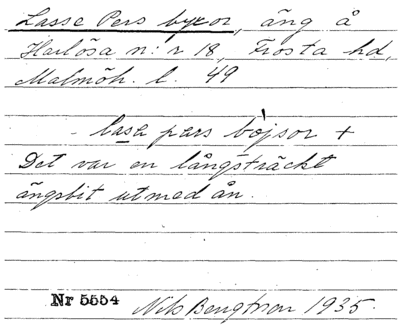 Lasse Pers byxor, äng å
Harlösa n:r 18, Frosta hd,
Malmöh. l. 49
- lasa pärs bòjsor +
Det var en långsträckt
ängsbit utmed ån.
Nr 5554 Nils Bengtsson 1935.